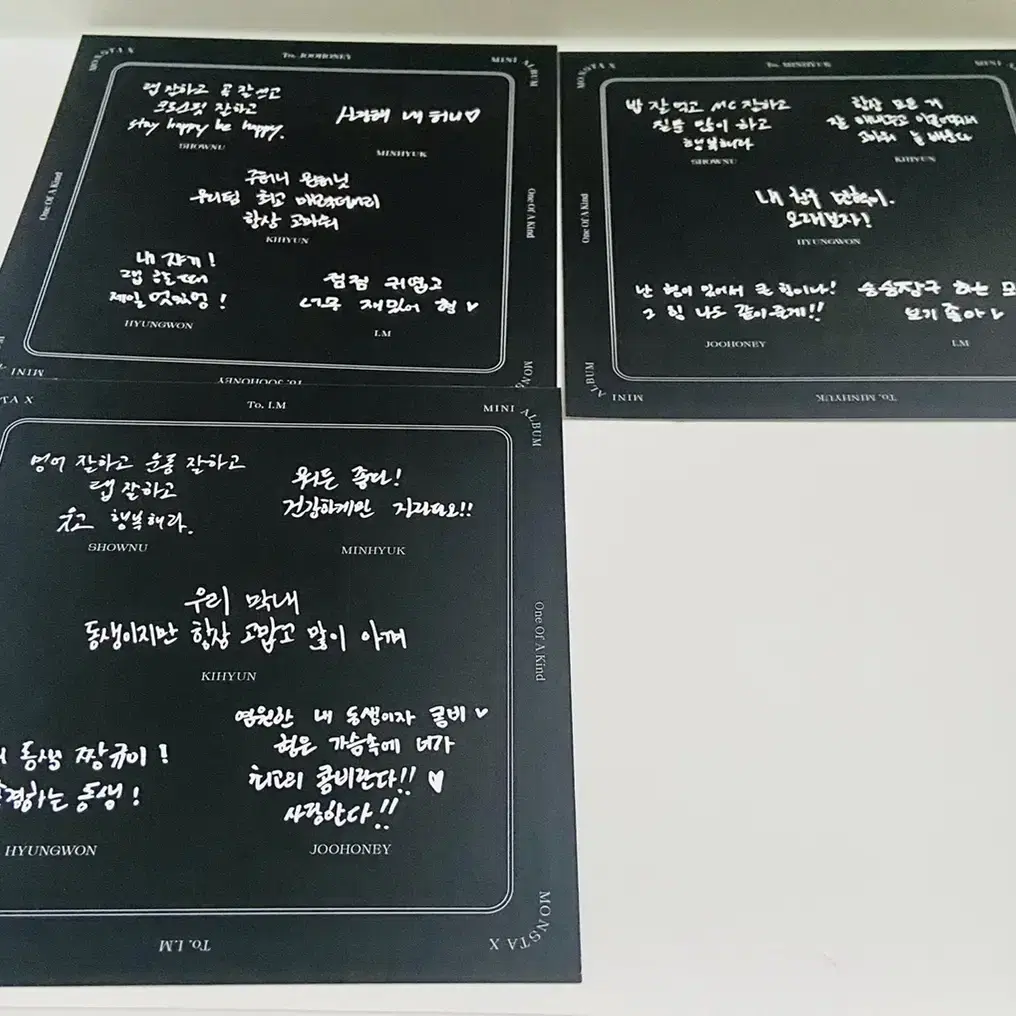 MONSTA X
To. JOOHONEY
MINI ALBUM
One Of A Kind
랩 잘하고 곡 잘쓰고
크로스핏 잘하고
stay happy be happy.
SHOWNU
사랑해 내 허니♡
MINHYUK
구허니 원허닛
우리팀 최고 매력덩어리
항상 고마워
KIHYUN
내 쟈기!
랩 할 때
제일 멋있엉!
HYUNGWON
점점 귀엽고
너무 재밌어 형♥
I.M
One Of A Kind
MINI
To. JOOHONEY
MONS
MONSTA X
To. MINHYUK
MINI
One Of A Kind
밥 잘 먹고 MC 잘하고
질문 많이 하고
행복해라
SHOWNU
항상 모든 거
잘 해내주고 이끌어줘서
고마워 늘 배운다
KIHYUN
내 친구 민혁이.
오래보자!
HYUNGWON
난 형이 있어서 큰 힘이나!
그 힘 나도 같이줄게!!
JOOHONEY
승승장구 하는 모
보기 좋아♥
I.M
MINI ALBUM
To. MINHYUK
TA X
To. I.M
MINI ALBUM
영어 잘하고 운동 잘하고
랩 잘하고
웃고 행복해라.
SHOWNU
뭐든 좋다!
건강하게만 자라다오!!
MINHYUK
우리 막내
동생이지만 항상 고맙고 많이 아껴
KIHYUN
동생 짱규이!
하는 동생!
HYUNGWON
영원한 내 동생이자 콤비♥
형은 가슴속에 너가
최고의 콤비란다!!♥
사랑한다!!
JOOHONEY
One Of A Kind
To. I.M
MONSTA X